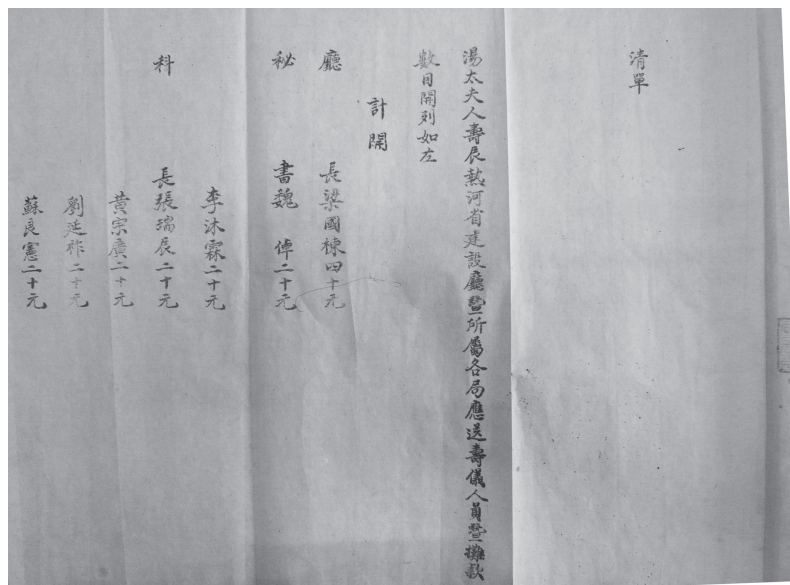 清單
湯太夫人壽辰熱河省建設廳暨所屬各局應送壽儀人員暨攤款
數目開列如左
計開
廳 長梁國棟四十元
秘 書魏 倬二十元
李沐霖二十元
科 長張瑞辰二十元
黃宗廣二十元
劉延祚二十元
蘇良憲二十元